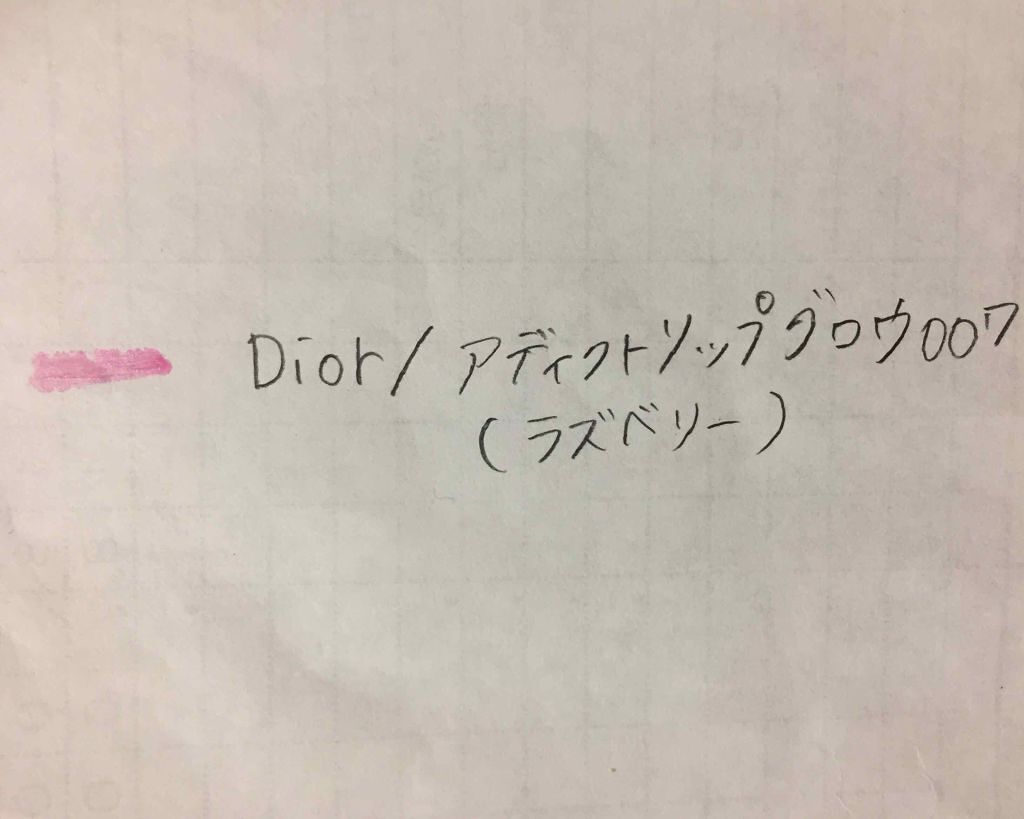 Dior/アディクトリップグロウ007
(ラズベリー)